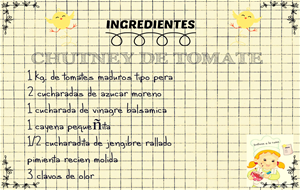 INGREDIENTES
CHUTNEY DE TOMATE
1 kg. de tomates maduros tipo pera
2 cucharadas de azucar moreno
1 cucharada de vinagre balsamica
1 cayena pequeñita
1/2 cucharadita de jengibre rallado
pimienta recien molida
3 clavos de olor